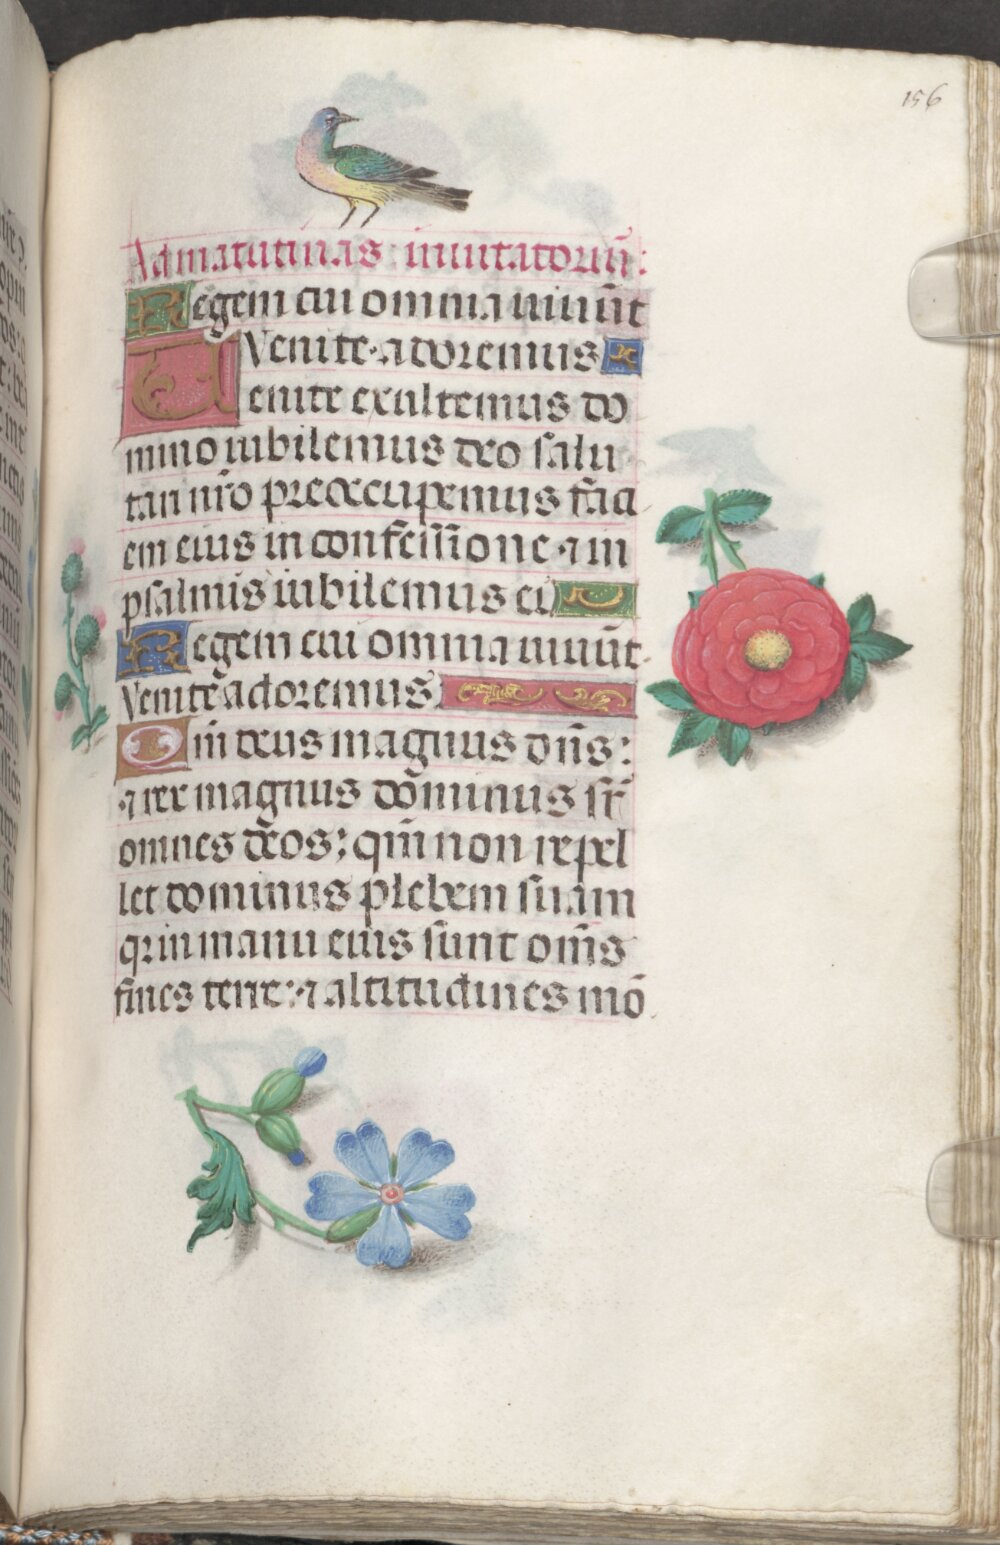 156
Ad matutinas inuitatoriũ:
Regem cui omnia uiuũt
Venite adoremus
Venite exultemus do
mino iubilemus deo salu
tari nr̃o preoccupemus faci
em eius in confessione ⁊ in
psalmis iubilemus ei
Regem cui omnia uiuũt
Venite adoremus
Qm̃ deus magnus dñs:
⁊ rex magnus dõminus sr̃
omnes deos; qm̃ non repel
let dominus plebem suam
qr in manu eius sunt om̃s
fines terre: ⁊ altitudines mõ